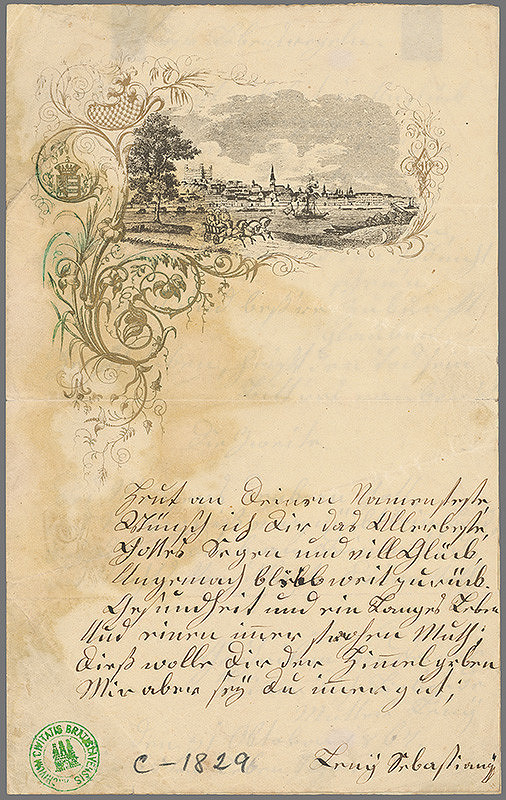 Heut an Deinen Namensfeste
Wünsch ich Dir das Allerbeste,
Gottes Segen und vill Glück,
Ungemach bleib weit zurück.
Gesundheit und ein Langes Leben
Und einen imer frohen Muth;
Dieß wolle Dir der Himel geben
Mir aber seÿ Du imer gut;
Lenÿ Sebastianÿ
C-1829
CIVITATIS BRATISLAVENSIS